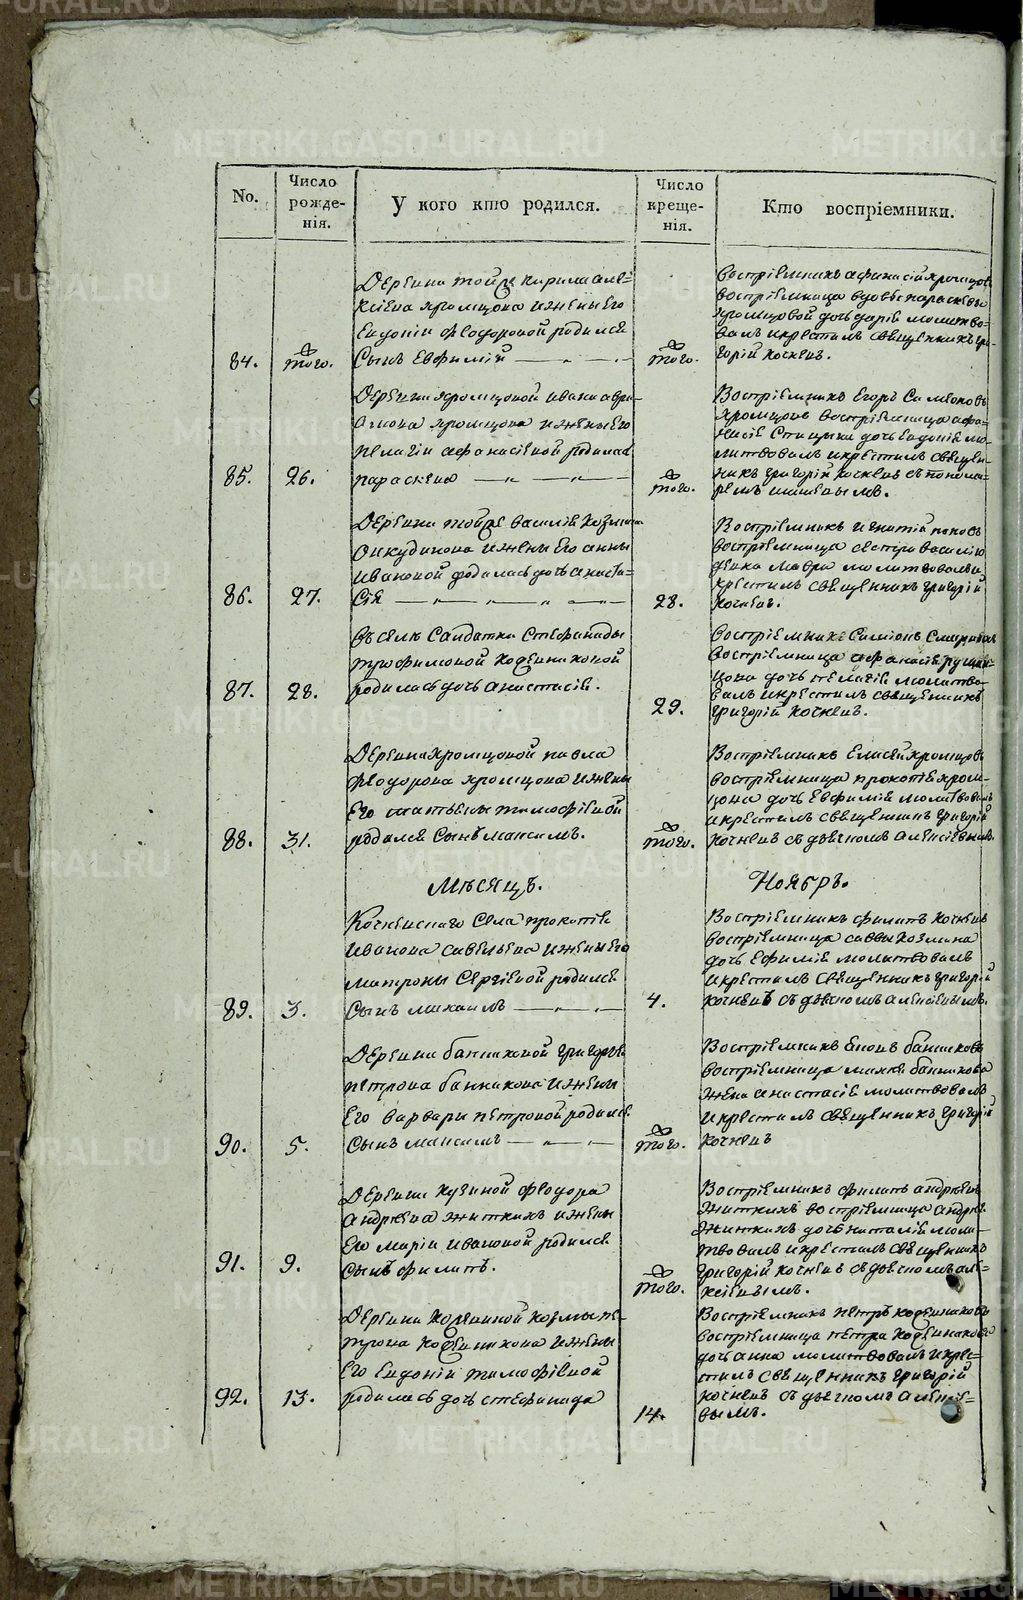 No.
Число рожде-
нія.
У кого кто родился.
Число креще-
нія.
Кто воспріемники.
84.
того.
Деревни тойже Кирила Але-
ксіева Хромцова и жены его
Евдокіи Феодоровой родился
сынъ Евфимій
того.
Воспріемникъ Афанасій Хромцовъ
воспріемница вдовы Парасковьи
Хромцовой дочь Дарія молитво-
валъ и крестилъ священникъ Гри-
горій Кочневъ.
85.
26.
Деревни Хромцовой Ивана
Хромцова и жены его
Пелагіи Афанасіевой родилась
Параскева
того.
Воспріемникъ Егоръ Симеоновъ
Хромцовъ воспріемница Афа-
насія дочь Евдокія мо-
литвовалъ и крестилъ священ-
никъ Григорій Кочневъ съ понома-
ремъ
86.
27.
Деревни тойже Василія Козмина
Анкудинова и жены его Анны
Ивановой родилась дочь Анаста-
сія
28.
Воспріемникъ Игнатій Поповъ
воспріемница сестра Василію
девка Мавра молитвовалъ и
крестилъ священникъ Григорій
Кочневъ.
87.
28.
Въ селе Салдатки Стефаниды
Трофимовой
родилась дочь Анастасія.
29.
Воспріемникъ Симіонъ
воспріемница Афанасія
дочь Пелагія молитво-
валъ и крестилъ священникъ
Григорій Кочневъ.
88.
31.
Деревни Хромцовой Павла
Феодорова Хромцова и жены
его Татьяны Тимофіевой
родился сынъ Максимъ.
того.
Воспріемникъ Елисей Хромцовъ
воспріемница Прокопія Хром-
цова дочь Евфимія молитвовалъ
и крестилъ священникъ Григорій
Кочневъ съ дьячкомъ Алексіевымъ.
Мѣсяцъ.
Ноябрь.
89.
3.
Кочневскаго села Прокопія
Иванова Савельева и жены его
Матроны Сергіевой родился
сынъ Михаилъ
4.
Воспріемникъ Филипъ Кочневъ
воспріемница Саввы Козмина
дочь Ефимія молитвовалъ
и крестилъ священникъ Григорій
Кочневъ съ дьячкомъ Алексіевымъ.
90.
5.
Деревни Банниковой Григорья
Петрова Банникова и жены
его Варвары Петровой родился
сынъ Максимъ
того.
Воспріемникъ Банниковъ
воспріемница Банникова
жена Анастасія молитвовалъ
и крестилъ священникъ Григорій
Кочневъ
91.
9.
Деревни Феодора
Андреева Житкихъ и жены
его Маріи Ивановой родился
сынъ Филипъ.
того.
Воспріемникъ Филипъ Андреевъ
Житкихъ воспріемница Андрея
Житкихъ дочь Наталія моли-
твовалъ и крестилъ священникъ
Григорій Кочневъ съ дьячкомъ Але-
ксіевымъ.
92.
13.
Деревни Козмы Пе-
трова и жены
его Евдокіи Тимофіевой
родилась дочь Стефанида
14.
Воспріемникъ Петръ
воспріемница Петра
дочь Анна молитвовалъ и крес-
тилъ священникъ Григорій
Кочневъ съ дьячкомъ Алексіе-
вымъ.
METRIKI.GASO-URAL.RU